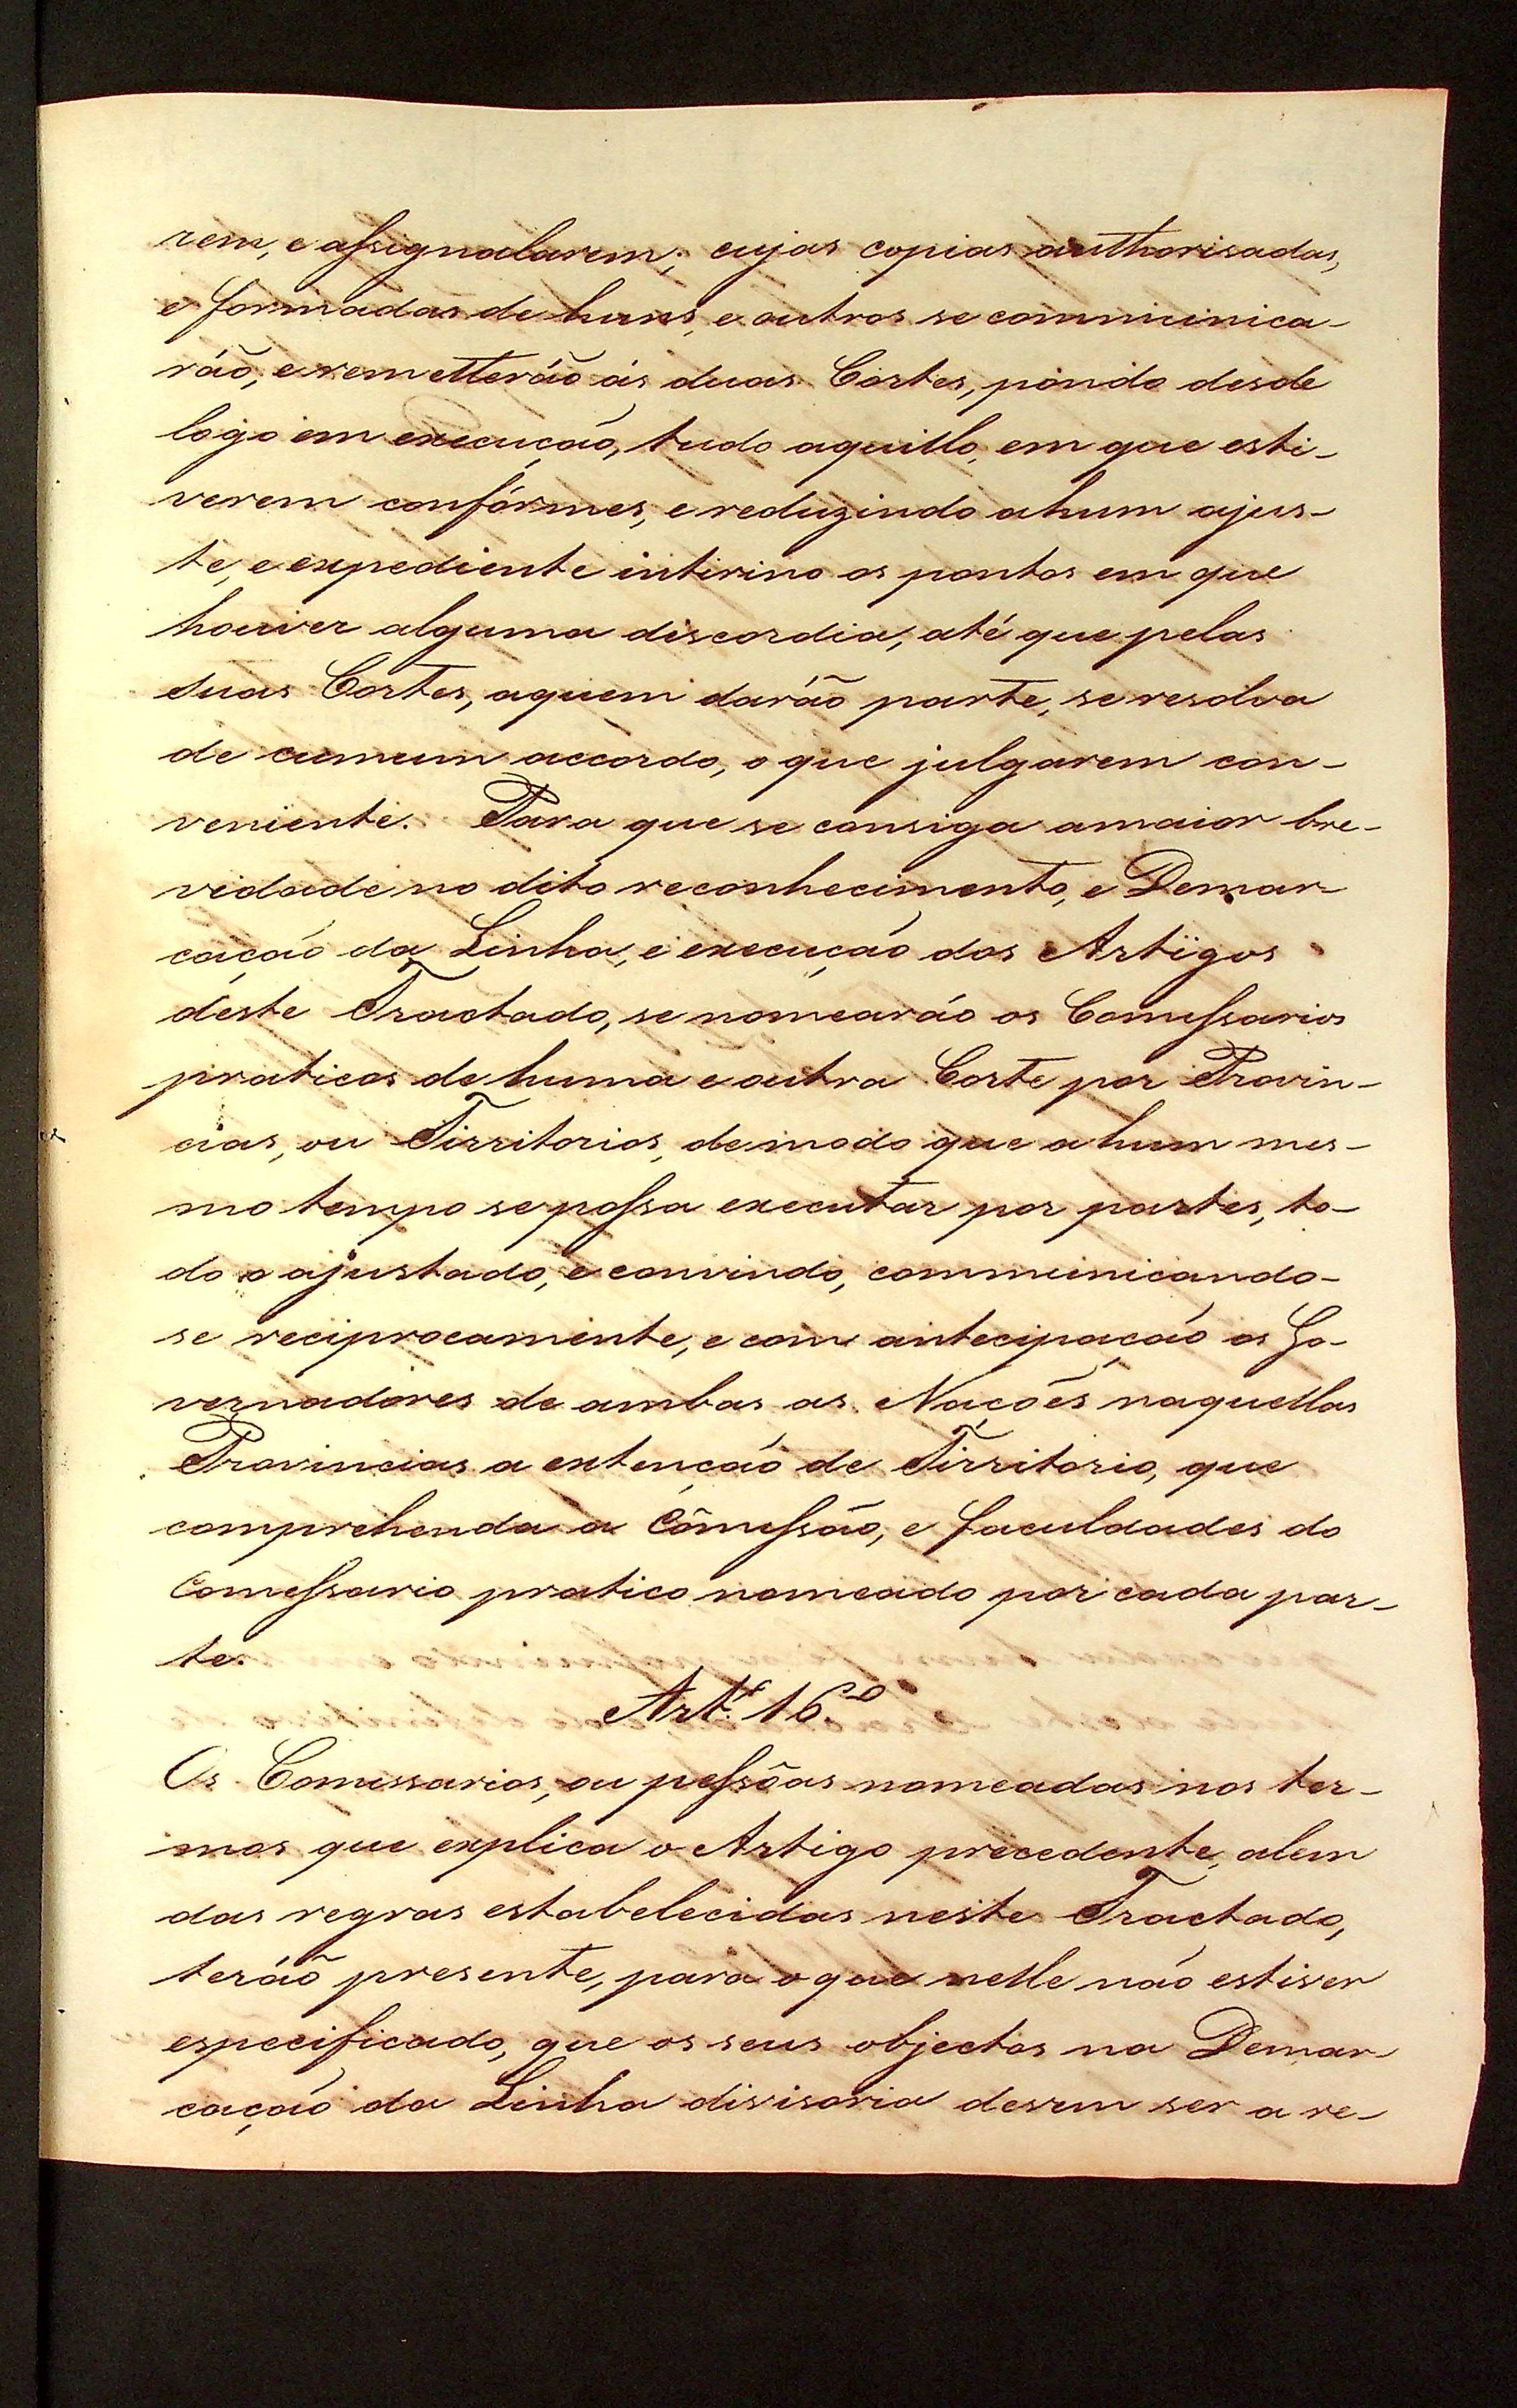 rem, e assignalarem; cujas copias authorisadas,
e formadas de huns, e outros se communica-
ráõ, e remetteráõ ás duas Cortes, pondo desde
logo em execução, tudo aquillo, em que esti-
verem confórmes, e reduzindo a hum ajus-
te, e expediente intirino os pontos em que
houver alguma discordia, até que pelas
suas Cortes, aquem daráõ parte, se resolva
de cumum accordo, o que julgarem con-
veniente. Para que se consiga amaior bre-
vidade no dito reconhecimento, e Demar
cação da Linha, e execução dos Artigos
deste Tractado, se nomearáo os Comessarios
praticos de huma e outra Corte por Provin-
cias, ou Tirritorios, demodo que a hum mes-
mo tempo se possa executar por partes, to-
do o ajustado, e convindo, communicando-
se reciprocamente, e com antecipação os Go-
vernadores de ambas as Nações naquellas
Provincias a extenção de Tirritorio, que
comprehenda a Cômessão, e faculdades do
Comessario pratico nomeado por cada par-
te.
Art.º 16.º
Os Comissarios, ou pessôas nomeadas nos ter-
mos que explica o Artigo precedente, alem
das regras estabelecidas neste Tractado,
teráõ presente, para o que nelle não estiver
especificado, que os seus objectos na Demar-
cação da Linha divisoria devem ser a re-